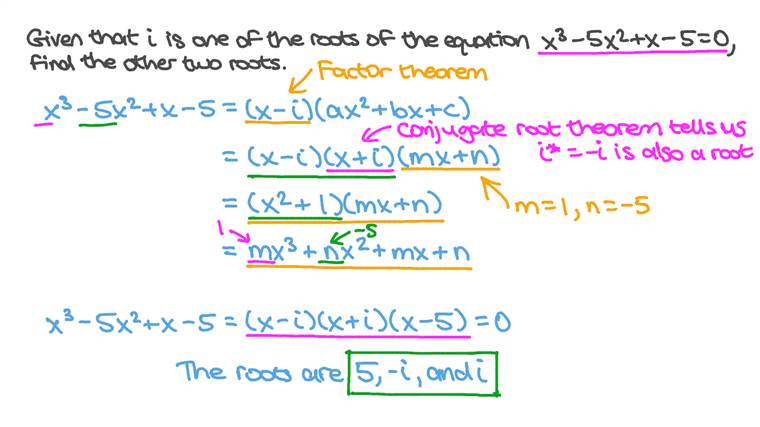 Given that i is one of the roots of the equation x³ - 5x² + x - 5 = 0,
find the other two roots.
Factor theorem
x³ - 5x² + x - 5 = (x - i)(ax² + bx + c)
conjugate root theorem tells us
i* = -i is also a root
= (x - i)(x + i)(mx + n)
= (x² + 1)(mx + n)
m = 1, n = -5
1
-5
= mx³ + nx² + mx + n
x³ - 5x² + x - 5 = (x - i)(x + i)(x - 5) = 0
The roots are 5, -i, and i